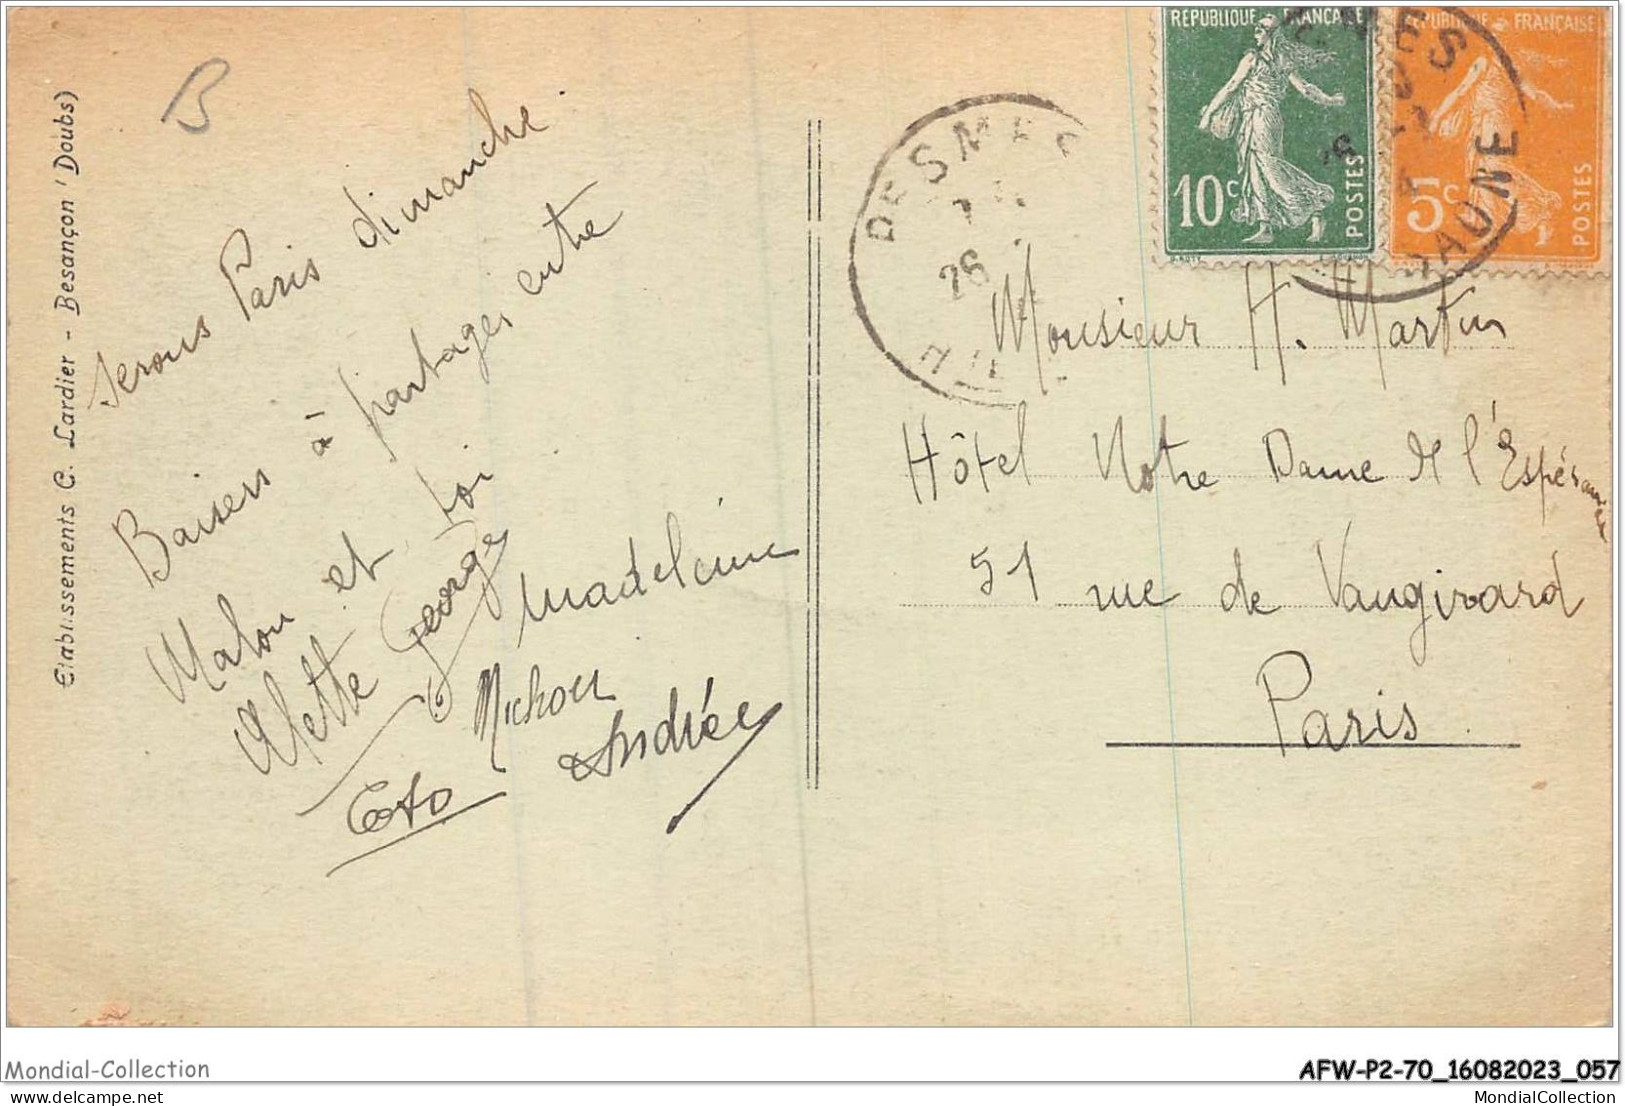 Etablissements C. Lardier - Besançon (Doubs)
B
serons Paris dimanche
Baisers à partager entre
Malou et toi
Alette George Madeleine
Michou
Toto Andrée
RÉPUBLIQUE FRANÇAISE
10c POSTES
RÉPUBLIQUE FRANÇAISE
5c POSTES
DESM
26
SAONE
Monsieur H. Martin
Hôtel Notre Dame de l'Espérance
51 rue de Vaugirard
Paris
Mondial-Collection
AFW-P2-70_16082023_057
MondialCollection